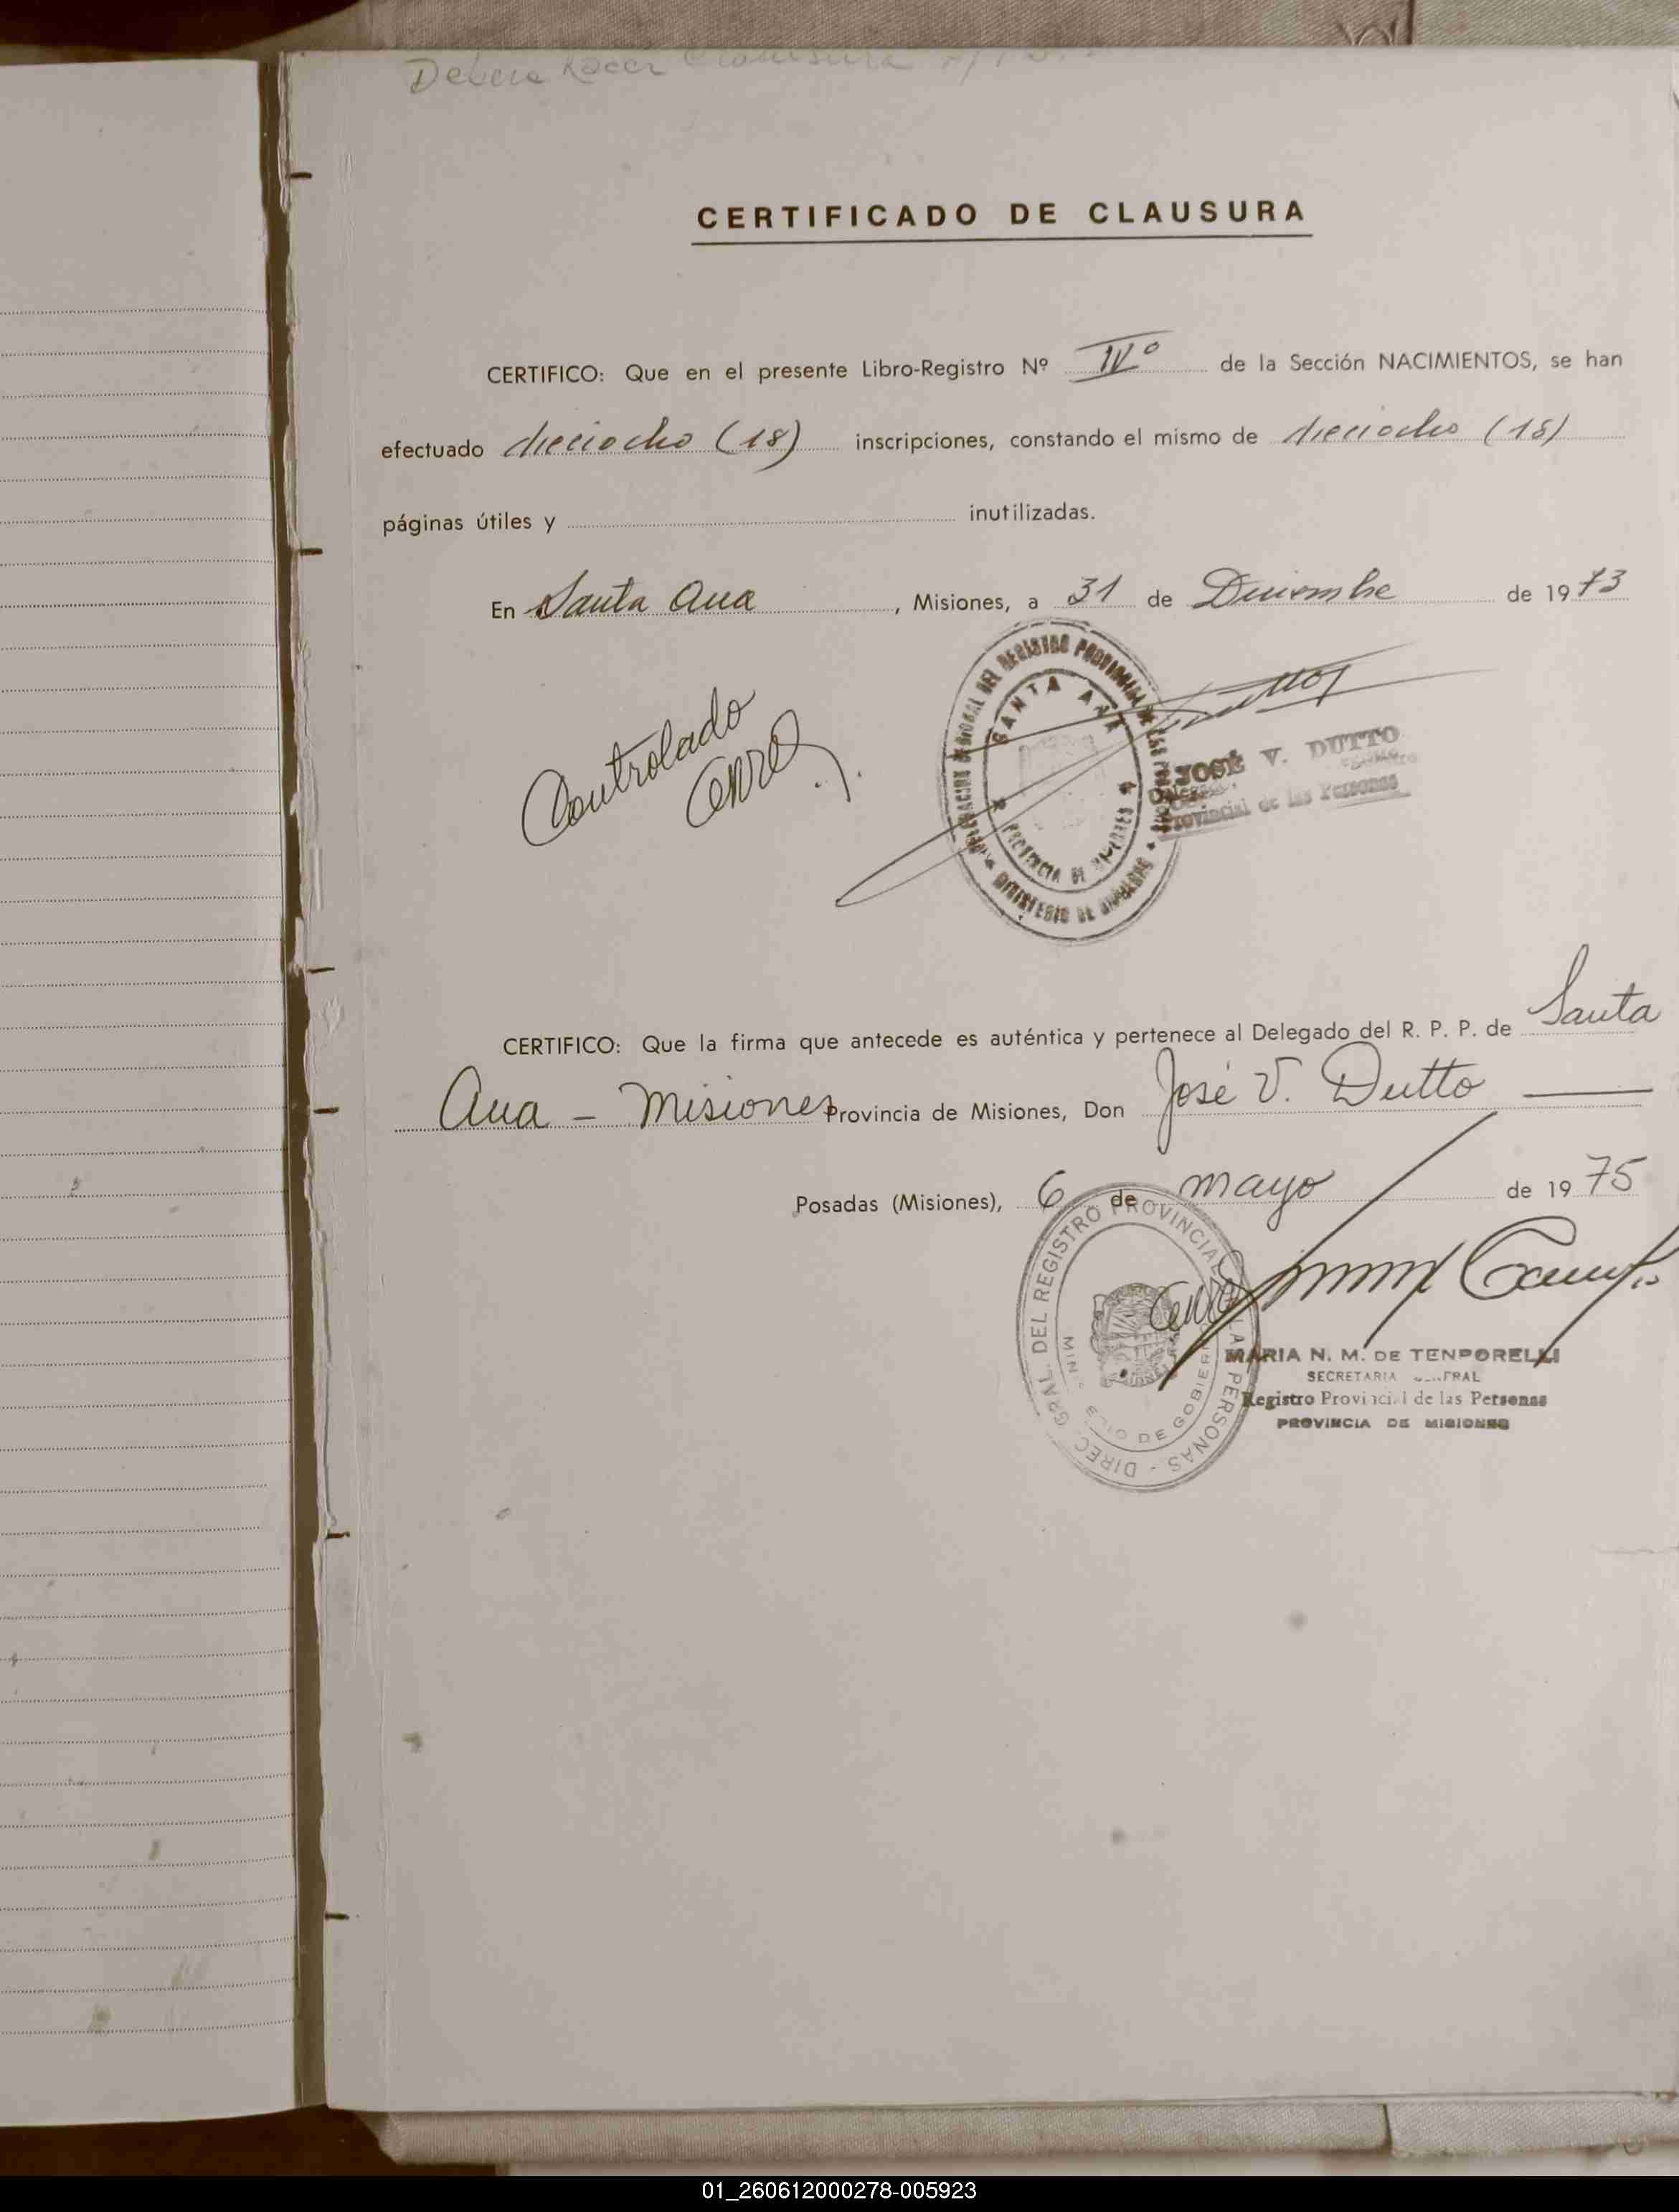 Debera hacer clausura
CERTIFICADO DE CLAUSURA
CERTIFICO: Que en el presente Libro-Registro Nº IVº de la Sección NACIMIENTOS, se han
efectuado dieciocho (18) inscripciones, constando el mismo de dieciocho (18)
páginas útiles y inutilizadas.
En Santa Ana, Misiones, a 31 de Diciembre de 1973
Controlado
DELEGACION REGIONAL DEL REGISTRO PROVINCIAL DE LAS PERSONAS
SANTA ANA
PROVINCIA DE MISIONES
MINISTERIO DE GOBIERNO
JOSÉ V. DUTTO
Provincial de las Personas
CERTIFICO: Que la firma que antecede es auténtica y pertenece al Delegado del R. P. P. de Santa
Ana - Misiones Provincia de Misiones, Don José V. Dutto
Posadas (Misiones), 6 de mayo de 1975
DIREC. GRAL. DEL REGISTRO PROVINCIAL LAS PERSONAS
MINISTERIO DE GOBIERNO
MARIA N. M. DE TENPORELLI
SECRETARIA GENERAL
Registro Provincial de las Personas
PROVINCIA DE MISIONES
01_260612000278-005923